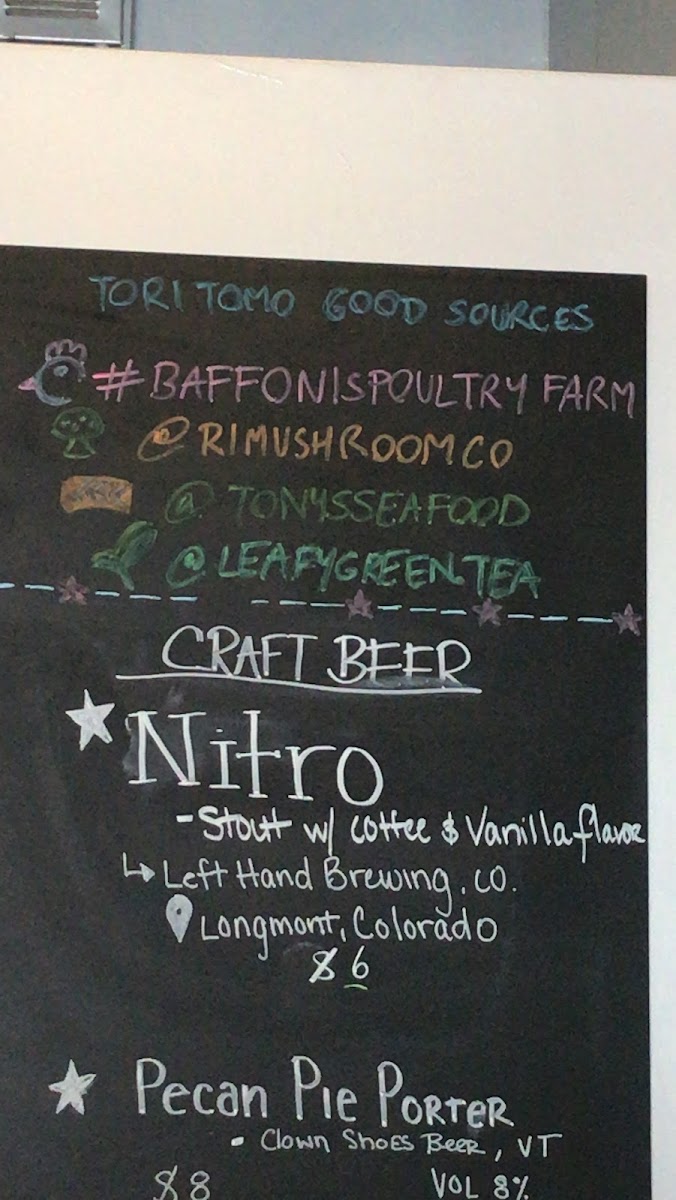 TORI TOMO GOOD SOURCES
#BAFFONISPOULTRY FARM
@RIMUSHROOMCO
@TONYSSEAFOOD
@LEAFYGREENTEA
CRAFT BEER
Nitro
- Stout w/ coffee & Vanilla flavor
↳ Left Hand Brewing. CO.
Longmont, Colorado
$6
Pecan Pie PORTER
- CLOWN SHOES BEER, VT
$8 VOL 8%